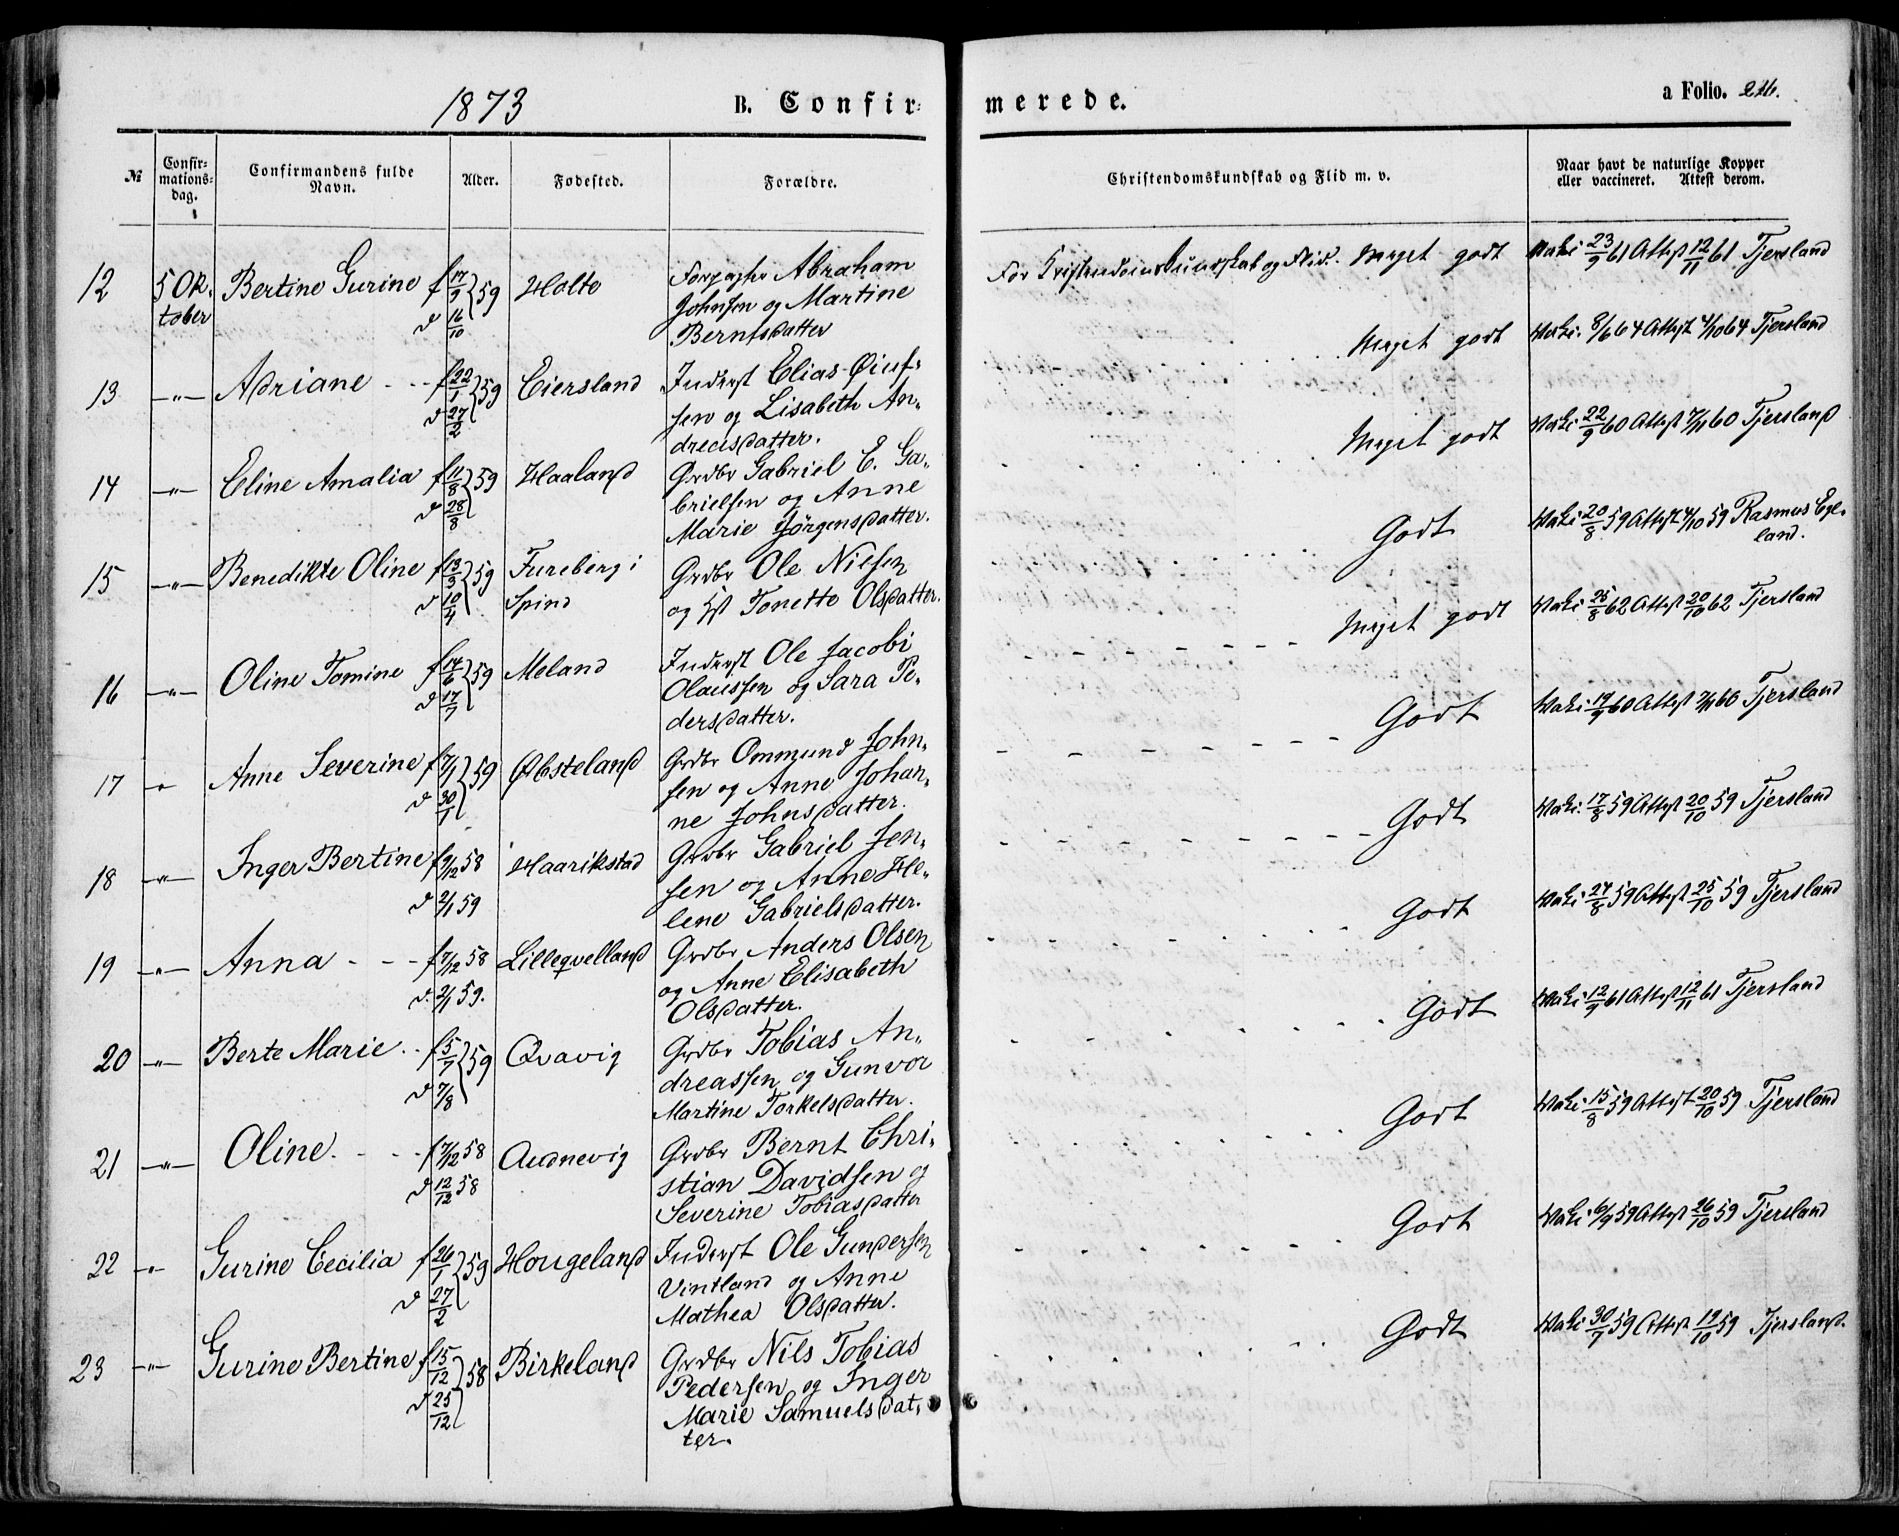 1873 B. Confir-
merede. a Folio. 226.
№ Confir-mations-dag. Confirmandens fulde Navn. Alder. Fødested. Forældre.
Christendomskundskab og Flid m. v. Naar havt de naturlige Kopper eller vaccineret. Attest derom.
12 5 Ok- Bertine Gurine f 17/9 } 59 Holte Forpagter Abraham
tober d 16/10 Johnsen og Martine
Berntsdatter
For Kristendomskundskab og Flid. Meget godt Vaki 23/9 61 Attest 12/11 61 Tjersland
13 -"- Adriane - - - f 22/1 } 59 Eiersland Inderst Elias Øiuf-
d 27/2 sen og Lisabeth An-
dreasdatter.
Meget godt Vaki. 8/6 64 Attest 4/10 64 Tjersland
14 -"- Eline Amalia f 11/8 } 59 Haaland Grdbr Gabriel E. Ga-
d 28/8 brielsen og Anne
Marie Jørgensdatter.
Meget godt Vaki 22/9 60 Attest 7/11 60 Tjersland
15 -"- Benedikte Oline f 13/3 } 59 Fureberg i Grdbr Ole Nielsen
d 10/4 Spind og Hst Tonette Olsdatter.
Godt Vaki 20/8 59 Attest 4/10 59 Rasmus Ege-
land.
16 -"- Oline Tomine f 14/6 } 59 Meland Inderst Ole Jacobi
d 17/7 Olaussen og Sara Pe-
dersdatter.
Meget godt Vaki 25/8 62 Attest 20/10 62 Tjersland
17 " Anne Severine f 7/1 } 59 Øbsteland Grdbr Ommund John-
d 30/1 sen og Anne Johan-
ne Johnsdatter.
Godt Vaki 19/9 60 Attest 7/11 60 Tjersland
18 -"- Inger Bertine f 9/12 58 Haarikstad Grdbr Gabriel Jen-
d 2/1 59 sen og Anne He-
lene Gabrielsdatter.
Godt Vaki. 17/8 59 Attest 20/10 59 Tjersland
19 -"- Anna - - - f 7/12 58 Lilleqvelland Grdbr Anders Olsen
d. 2/1 59. og Anne Elisabeth
Olsdatter.
Godt Vaki 24/8 59 Attest 25/10 59 Tjersland
20 -"- Berte Marie - - f 5/7 } 59 Qvavig Grdbr Tobias An-
d 7/8 dreassen og Gunvor
Martine Torkelsdatter.
Godt Vaki 12/9 61 Attest 12/11 61 Tjersland
21 -"- Oline. - - - f 7/12 58 Audnevig Grdbr Bernt Chri-
d 12/12 58 stian Davidsen og
Severine Tobiasdatter
Godt Vaki 15/8 59 Attest 20/10 59 Tjersland
22 -"- Gurine Cecilia f 26/1 } 59 Hougeland Inderst Ole Gundersen
d 27/2 Vintland og Anne
Mathea Olsdatter.
Godt Vaki 6/9 59 Attest 26/10 59 Tjersland
23 -"- Gurine Bertine f 15/12 } 58 Birkeland Grdbr Nils Tobias
d 25/12 Pedersen og Inger
Marie Samuelsdat-
ter.
Godt Vaki 30/7 59 Attest 19/10 59 Tjersland.